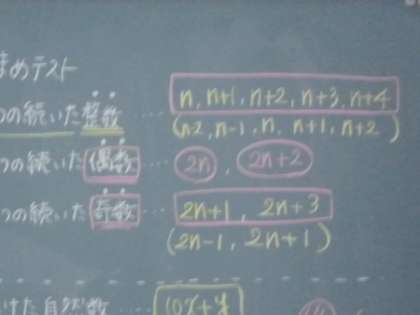 まめテスト
つの続いた整数 ‥‥ n, n+1, n+2, n+3, n+4
(n-2, n-1, n, n+1, n+2)
つの続いた偶数 ‥‥ 2n, 2n+2
つの続いた奇数 ‥‥ 2n+1, 2n+3
(2n-1, 2n+1)
けた自然数 ‥‥ 10x+y